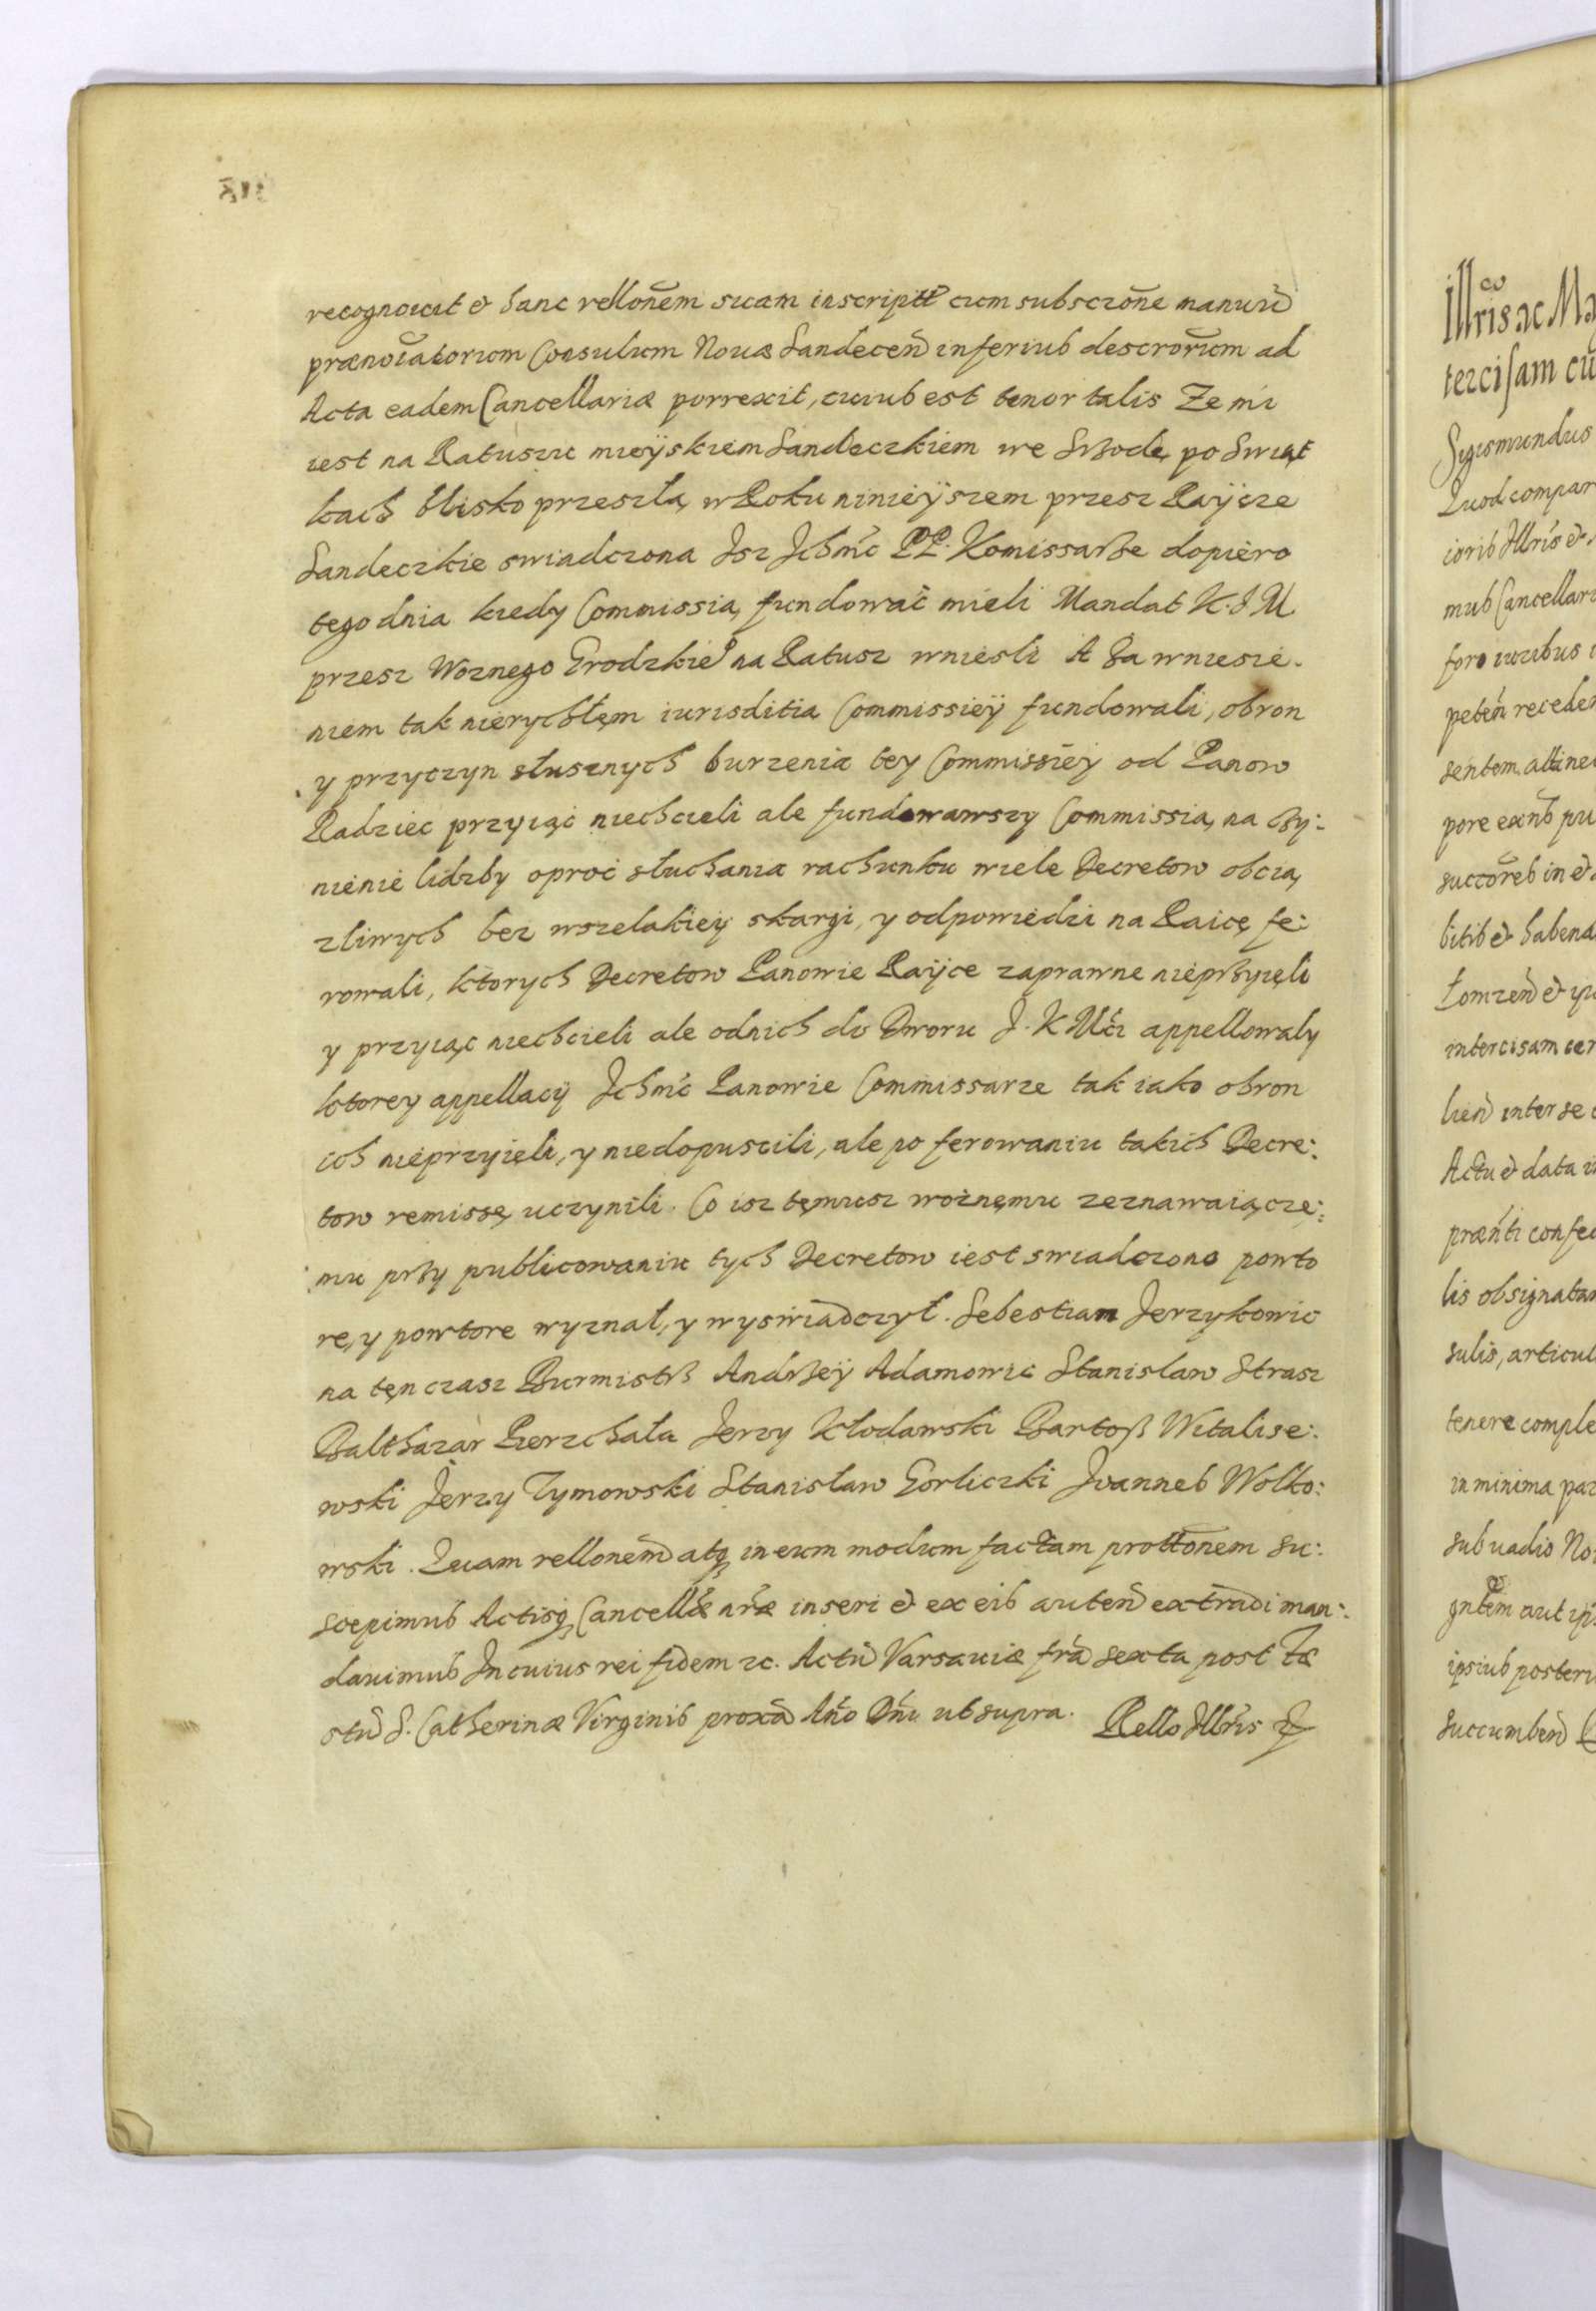 recognouit et hanc relloñem suam inscriptt cum subscrõne manuũ
prænoĩatorum Consulum Nouæ Sandeceñ inferius descrõrum ad
Acta eadem Cancellariæ porrexit, cuius est tenor talis Ze mi
iest na Ratuszu mieÿskiem Sandeczkiem we Srzodę po Swiąt
kach blisko przeszłą w Roku ninieÿszem przesz Raÿcze
Sandeczkie swiadczona Jsz Jchmć PP. Komissarze dopiero
tego dnia kiedy Commissią fundować mieli Mandat K. J M
przesz Woznego Grodzkieo na Ratusz wniesli A za wniesie.
niem tak nierychłęm iurisditią Commissieÿ fundowali, obron
y przyczyn słusznych burzenia tey Commissiey od Panow
Radziec przyiąć niechcieli ale fundowawszy Commissią na czy:
nienie lidzby oproć słuchania rachunku wiele Decretow obcią
zliwych bez wszelakiey skargi, y odpowiedzi na Raicę fe:
rowali, ktorych Decretow Panowie Raÿce zaprawne nieprzyięli
y przyiąc niechcieli ale odnich do Dworu J. K Mći appellowaly
ktorey appellacÿ Jchmć Panowie Commissarze tak iako obron
ich nieprzyięli, y niedopuscili, ale po ferowaniu takich Decre:
tow remissę uczynili. Co isz tęmusz woznęmu zeznawaiącze:
mu przy publicowaniu tych Decretow iest swiadczono powto
re, y powtore wyznał, y wyswiadczył. Sebestian Jerzykowic
na tęn czasz Burmistrz Andrzeÿ Adamowic Stanislaw Strasz
Balthazar Pierzchała Jerzy Kłodawski Bartosz Witalise:
wski Jerzy Tymowski Stanislaw Gorliczki Joannes Wolko:
wski. Quam rellonem atq in eum modum factam prottõnem su:
scepimus Actisq Cancellæ nræ inseri et ex eis auteñ extradi man:
dauimus Jn cuius rei fidem &c. Actũ Varsauiæ fra sexta post fæ
stũ S. Catherinæ Virginis proxa Año Dñi ut supra. Rello Jllris
Jllris ac Ma
tercisam cũ
Sigismundus
Quod compar
ioris Jllris et
mus Cancellar
foro iuribus
peteñ receden
sentem attine
pore
succõres in et
bitis et habena
Łomzeñ et
intercisam
lieñ inter se
Actu et data
præñti confec
lis obsignatam
sulis, articul
tenere comple
in minima par
sub uadio No
gñtem aut
ipsius posteri
succumbeñ